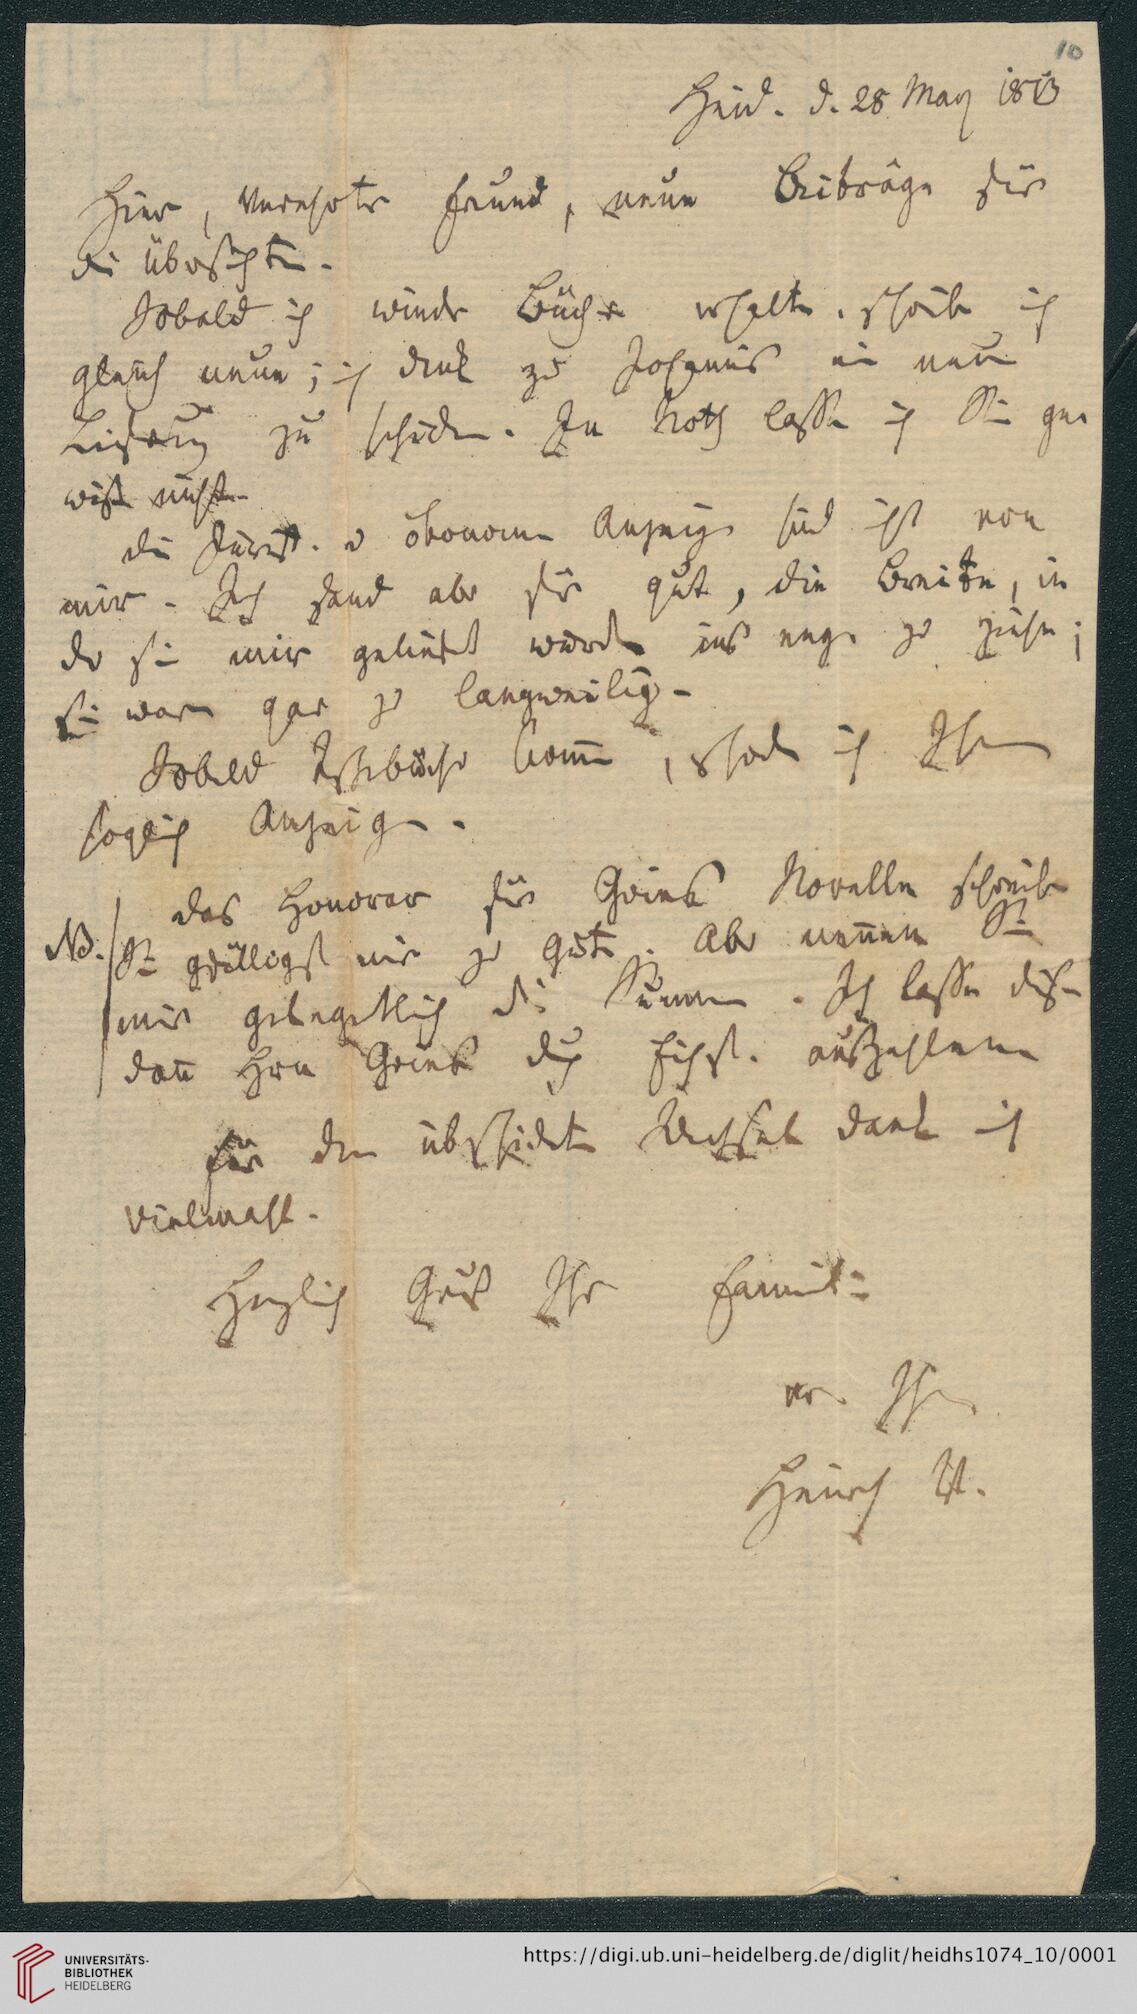 10
Heid. d. 28 May 1813
Hier, verehrter Freund, neue Beiträge für
die Übersichten.
Sobald ich wieder Bücher erhalte, schreibe ich
gleich neue; ich denke zu Johannis eine neue
Lieferung zu schicken. In Noth lasse ich Sie ge
wiß nicht.
Die Jurist. u ökonom Anzeigen sind nicht von
mir. Ich fand aber für gut, die Breite, in
der sie mir geliefert wurden ins enge zu ziehen;
sie waren gar zu langweilig.
Sobald Taschenbücher kommen, schicke ich Ihnen
sogleich Anzeigen.
NB. Das Honorar für Gries Novelle schreiben
Sie gefälligst mir zu gute. Aber nennen Sie
mir gelegentlich die Summe. Ich lasse diese
dann Hrn Gries durch auszahlen
Für den überschickten Wechsel danke ich
vielmahl.
Herzlich Gruß Ihrer Familie
von Ihrem
Heinrich V.
UNIVERSITÄTS-
BIBLIOTHEK
HEIDELBERG
https://digi.ub.uni-heidelberg.de/diglit/heidhs1074_10/0001